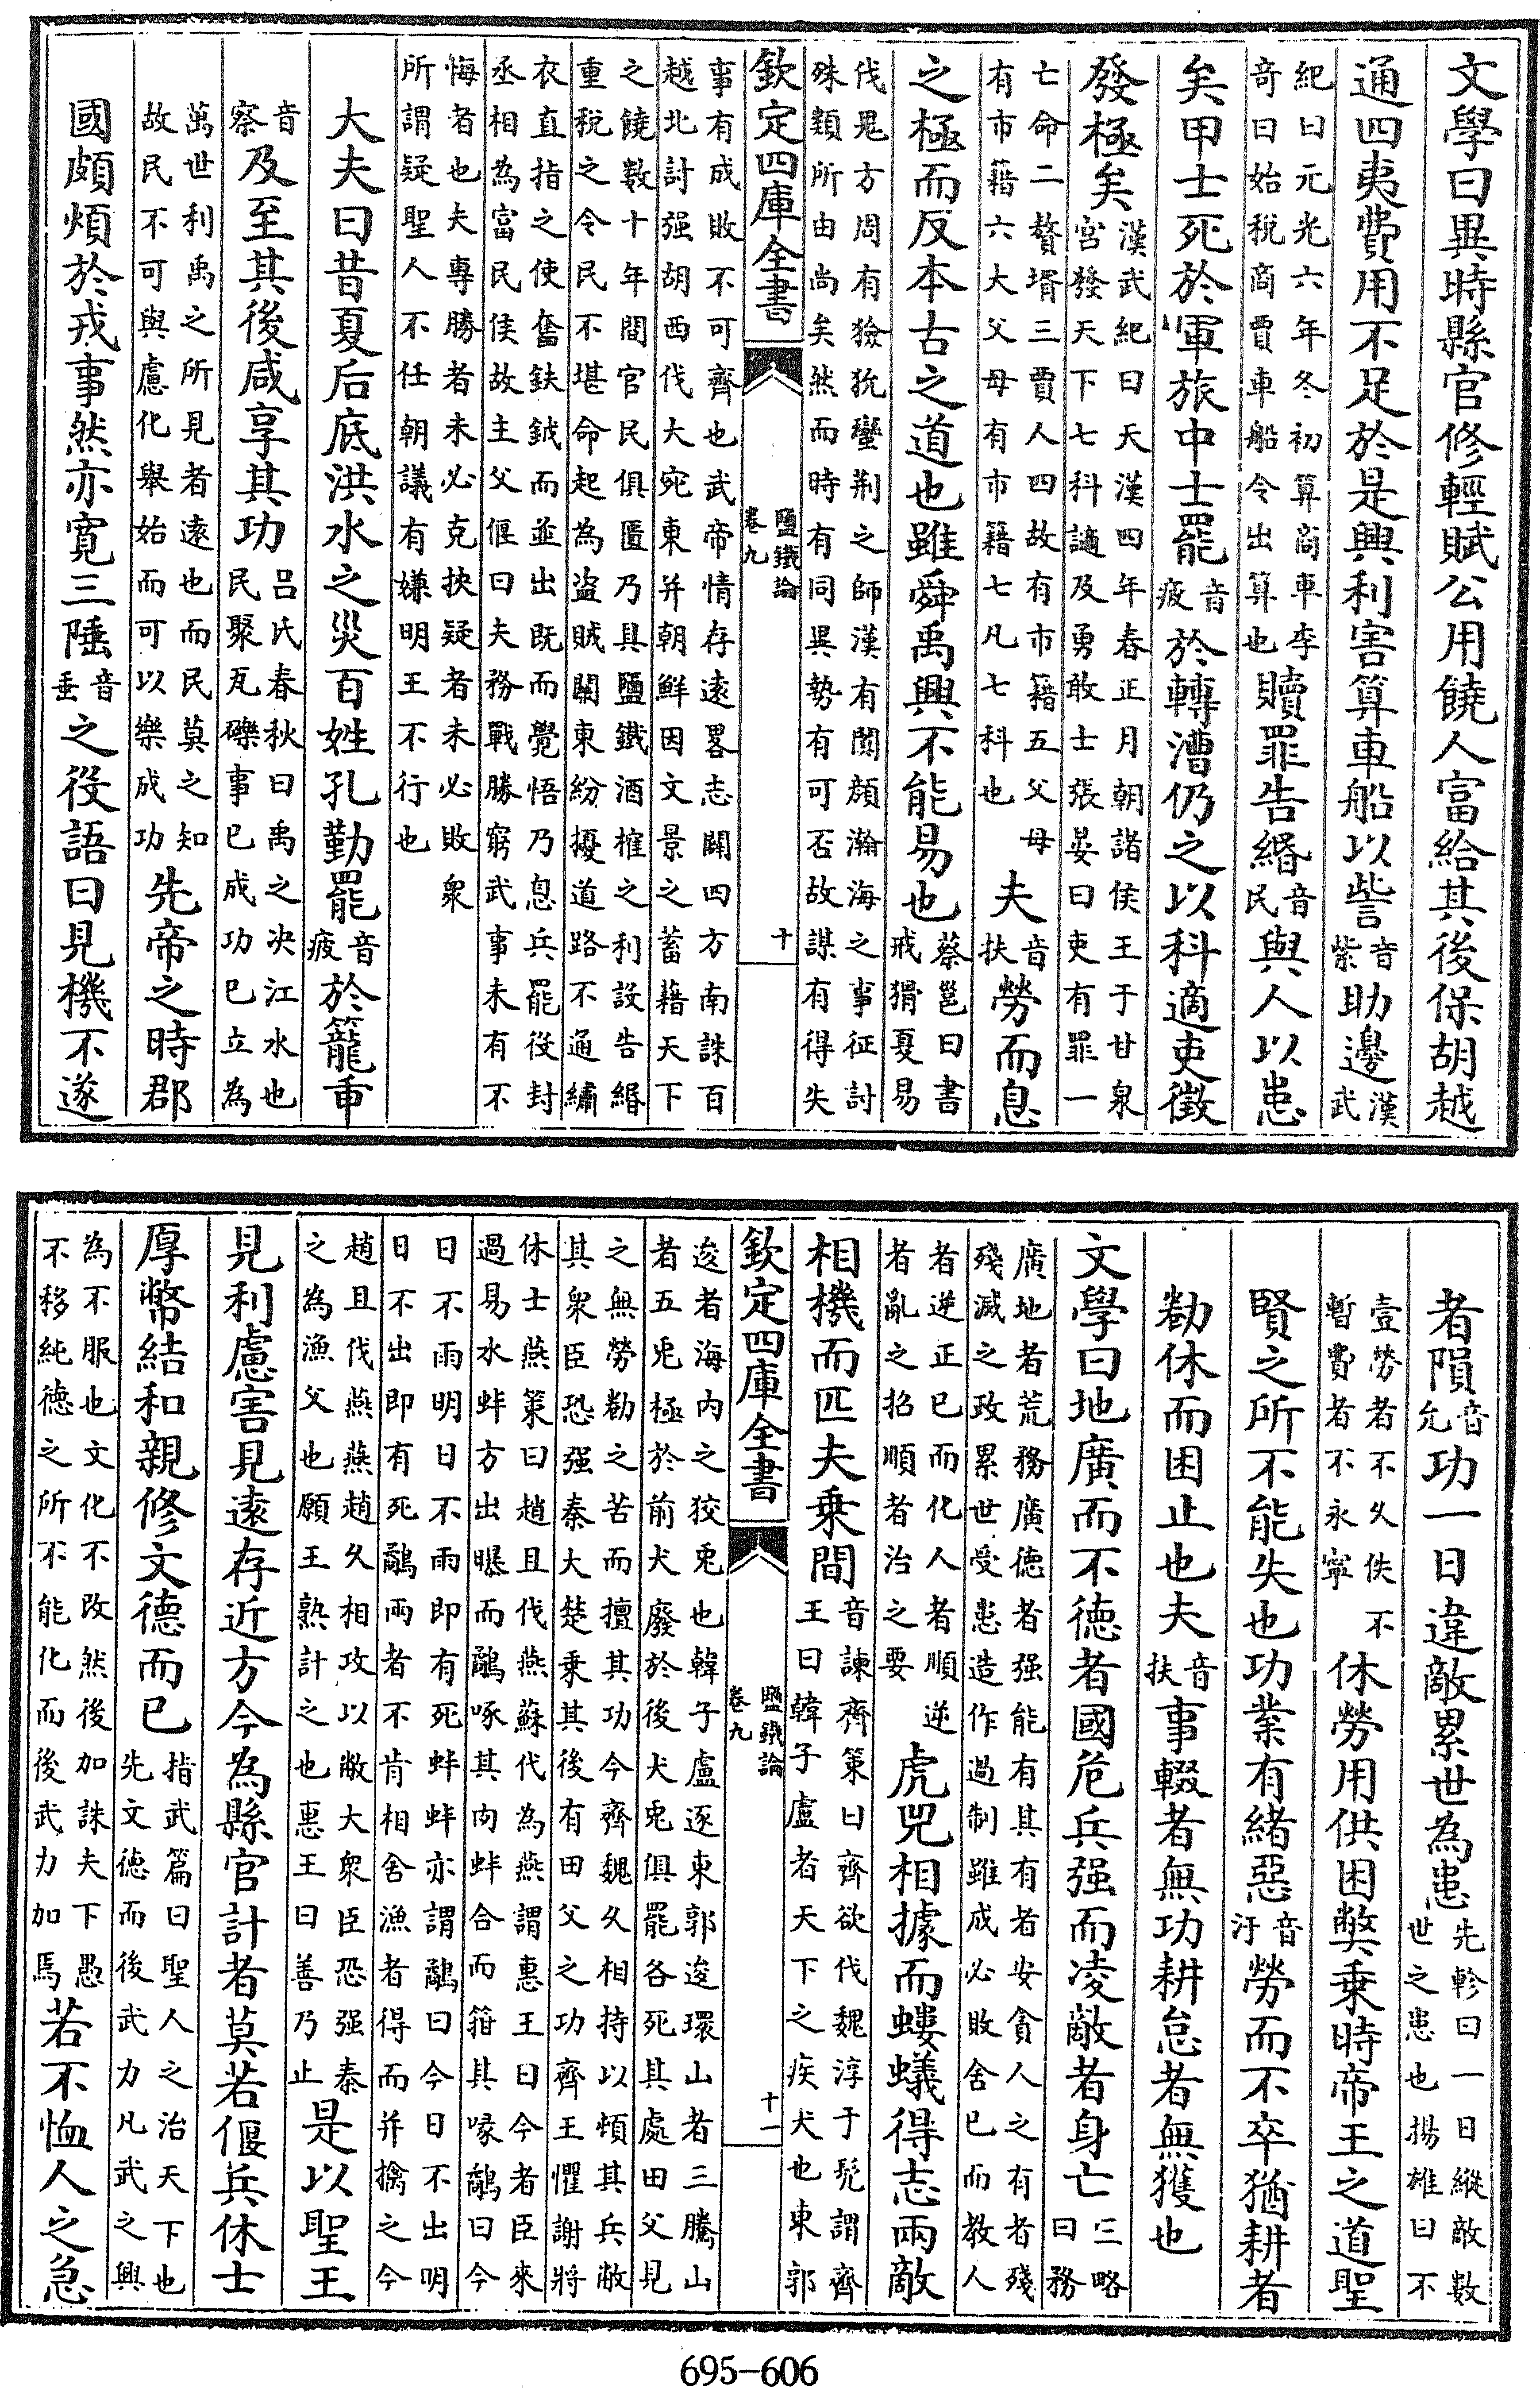 文學曰異時縣官修輕賦公用饒人富給其後保胡越
通四夷費用不足於是興利害算車船以訾音紫助邊漢武
紀曰元光六年冬初算商車李奇曰始稅商賈車船令出算也贖罪告緡音民與人以患
矣甲士死於軍旅中士罷音疲於轉漕仍之以科適吏徵
發極矣漢武紀曰天漢四年春正月朝諸侯王于甘泉宮發天下七科謫及勇敢士張晏曰吏有罪一
亡命二贅壻三賈人四故有市籍五父母有市籍六大父母有市籍七凡七科也夫音扶勞而息
之極而反本古之道也雖舜禹興不能易也蔡邕曰書戒猾夏易
伐鬼方周有獫狁蠻荆之師漢有闐顔瀚海之事征討殊類所由尚矣然而時有同異勢有可否故謀有得失
欽定四庫全書 鹽鐵論 卷九 十
事有成敗不可齊也武帝情存遠畧志闢四方南誅百越北討强胡西伐大宛東并朝鮮因文景之蓄藉天下
之饒數十年間官民俱匱乃具鹽鐵酒榷之利設告緡重稅之令民不堪命起為盜賊關東紛擾道路不通繡
衣直指之使奮鈇鉞而並出既而覺悟乃息兵罷役封丞相為富民侯故主父偃曰夫務戰勝窮武事未有不
悔者也夫專勝者未必克挾疑者未必敗衆所謂疑聖人不任朝議有嫌明王不行也
大夫曰昔夏后底洪水之災百姓孔勤罷音疲於籠臿
音察及至其後咸享其功吕氏春秋曰禹之决江水也民聚瓦礫事已成功已立為
萬世利禹之所見者遠也而民莫之知故民不可與慮化舉始而可以樂成功先帝之時郡
國頗煩於戎事然亦寛三陲音垂之役語曰見機不遂
者隕音允功一日違敵累世為患先軫曰一日縱敵數世之患也揚雄曰不
壹勞者不久佚不暫費者不永寧休勞用供困獘乗時帝王之道聖
賢之所不能失也功業有緒惡音汙勞而不卒猶耕者
勌休而困止也夫音扶事輟者無功耕怠者無獲也
文學曰地廣而不徳者國危兵强而凌敵者身亡三略曰務
廣地者荒務廣徳者强能有其有者安貪人之有者殘殘滅之政累世受患造作過制雖成必敗舍已而教人
者逆正已而化人者順逆者亂之招順者治之要虎兕相據而螻蟻得志兩敵
相機而匹夫乗間音諫齊策曰齊欲伐魏淳于髠謂齊王曰韓子盧者天下之疾犬也東郭
欽定四庫全書 鹽鐵論 卷九 十一
逡者海内之狡兎也韓子盧逐東郭逡環山者三騰山者五兎極於前犬廢於後犬兎俱罷各死其處田父見
之無勞勌之苦而擅其功今齊魏久相持以頓其兵敝其衆臣恐强秦大楚乗其後有田父之功齊王懼謝將
休士燕策曰趙且伐燕蘇代為燕謂惠王曰今者臣來過易水蚌方出曝而鷸啄其肉蚌合而箝其喙鷸曰今
日不雨明日不雨即有死蚌蚌亦謂鷸曰今日不出明日不出即有死鷸兩者不肯相舍漁者得而并擒之今
趙且伐燕燕趙久相攻以敝大衆臣恐强秦之為漁父也願王熟計之也惠王曰善乃止是以聖王
見利慮害見遠存近方今為縣官計者莫若偃兵休士
厚幣結和親修文德而已指武篇曰聖人之治天下也先文德而後武力凡武之興
為不服也文化不改然後加誅夫下愚不移純徳之所不能化而後武力加焉若不恤人之急
695-606